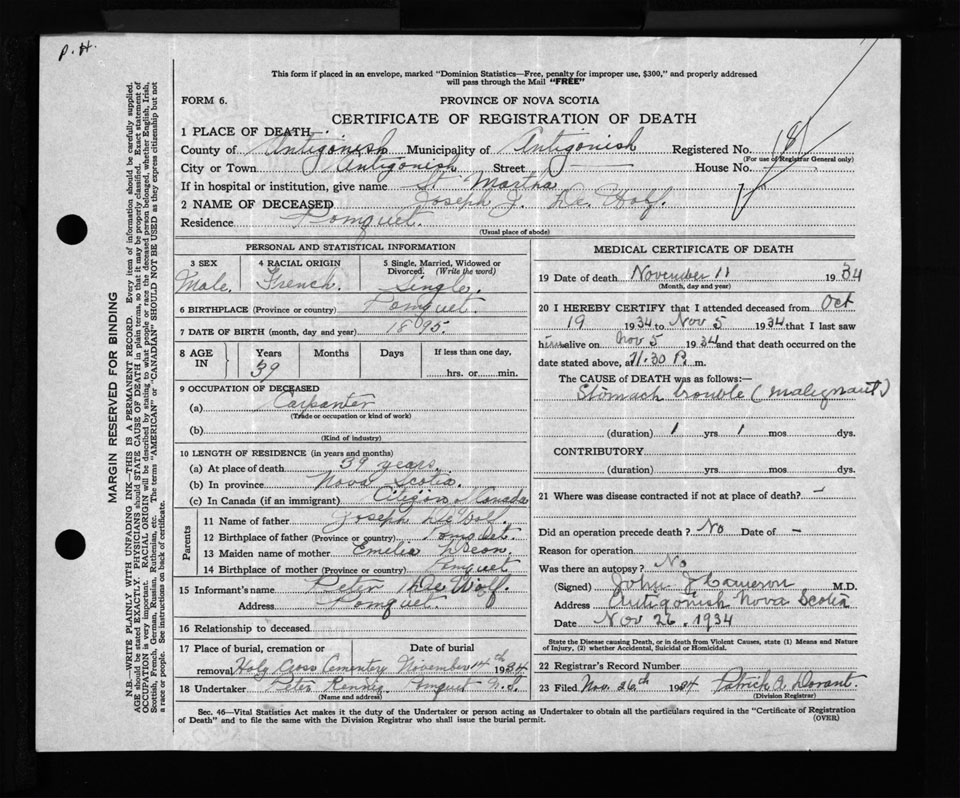 P. H.
This form if placed in an envelope, marked "Dominion Statistics—Free, penalty for improper use, $300," and properly addressed
will pass through the Mail "FREE"
FORM 6.
PROVINCE OF NOVA SCOTIA
CERTIFICATE OF REGISTRATION OF DEATH
1 PLACE OF DEATH
County of Antigonish Municipality of Antigonish Registered No. 181
(For use of Registrar General only)
City or Town Antigonish Street House No.
If in hospital or institution, give name St Martha
2 NAME OF DECEASED Joseph J. De Wolf.
Residence Pomquet.
(Usual place of abode)
PERSONAL AND STATISTICAL INFORMATION
3 SEX 4 RACIAL ORIGIN 5 Single, Married, Widowed or Divorced. (Write the word)
Male. French. Single.
6 BIRTHPLACE (Province or country) Pomquet.
7 DATE OF BIRTH (month, day and year) 1895.
8 AGE IN Years Months Days If less than one day,
39 hrs. or min.
9 OCCUPATION OF DECEASED
(a) Carpanter
(Trade or occupation or kind of work)
(b)
(Kind of industry)
10 LENGTH OF RESIDENCE (in years and months)
(a) At place of death 39 years.
(b) In province Nova Scotia.
(c) In Canada (if an immigrant) Citizin of Canada
Parents
11 Name of father Joseph
12 Birthplace of father (Province or country) Pomquet
13 Maiden name of mother Emelia Deon.
14 Birthplace of mother (Province or country) Pomquet
15 Informant's name Peter De Wolf.
Address Pomquet.
16 Relationship to deceased
17 Place of burial, cremation or removal Date of burial
Holy Cross Cementery November 14th 1934
18 Undertaker Peter Pomquet N.S.
(Name and address)
MEDICAL CERTIFICATE OF DEATH
19 Date of death November 11 1934
(Month, day and year)
20 I HEREBY CERTIFY that I attended deceased from Oct
19 1934 to Nov 5 1934 that I last saw
him alive on Nov 5 1934 and that death occurred on the
date stated above, at 11.30 P. m.
The CAUSE OF DEATH was as follows:—
Stomach trouble (malignant)
(duration) 1 yrs 1 mos dys.
CONTRIBUTORY
(duration) yrs. mos. dys.
21 Where was disease contracted if not at place of death? –
Did an operation precede death? No Date of –
Reason for operation
Was there an autopsy? No
(Signed) John J Cameron M.D.
Address Antigonish Nova Scotia
Date Nov 26. 1934
State the Disease causing Death, or in death from Violent Causes, state (1) Means and Nature
of Injury, (2) whether Accidental, Suicidal or Homicidal.
22 Registrar's Record Number
23 Filed Nov. 26th 1934 Patrick A.
(Division Registrar)
Sec. 46—Vital Statistics Act makes it the duty of the Undertaker or person acting as Undertaker to obtain all the particulars required in the "Certificate of Registration
of Death" and to file the same with the Division Registrar who shall issue the burial permit.
(OVER)
MARGIN RESERVED FOR BINDING
N.B.—WRITE PLAINLY WITH UNFADING INK—THIS IS A PERMANENT RECORD. Every item of information should be carefully supplied.
AGE should be stated EXACTLY. PHYSICIANS should STATE CAUSE OF DEATH in plain terms, so that it may be properly classified. Exact statement of
OCCUPATION is very important. RACIAL ORIGIN will be described by stating to what people or race the deceased person belonged, whether English, Irish,
Scottish, French, German, Russian, Ruthenian, etc. The terms "AMERICAN" or "CANADIAN" SHOULD NOT BE USED as they express citizenship but not
a race or people. See instructions on back of certificate.